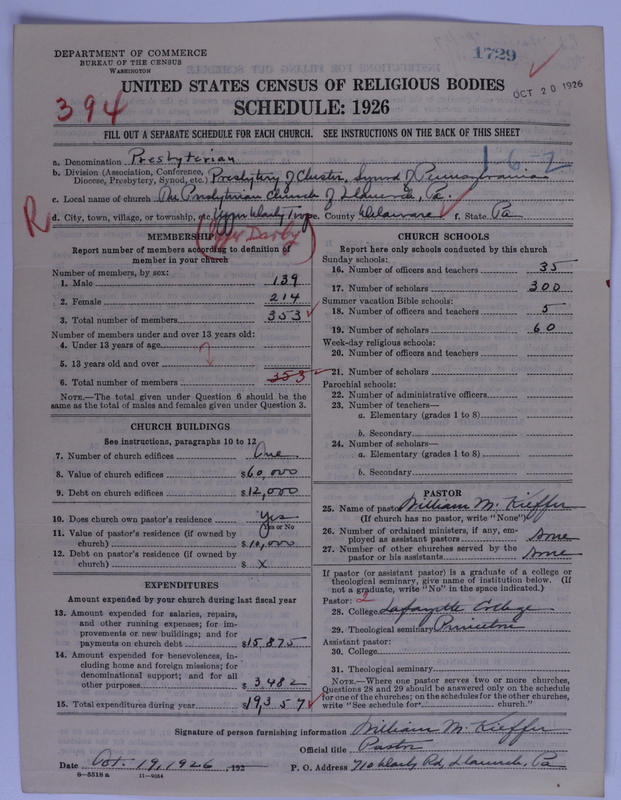 DEPARTMENT OF COMMERCE
BUREAU OF THE CENSUS
WASHINGTON
1729
UNITED STATES CENSUS OF RELIGIOUS BODIES
OCT 20 1926
394
SCHEDULE: 1926
FILL OUT A SEPARATE SCHEDULE FOR EACH CHURCH. SEE INSTRUCTIONS ON THE BACK OF THIS SHEET
a. Denomination Presbyterian
1-6-2
b. Division (Association, Conference, Diocese, Presbytery, Synod, etc.) Presbytery of Chester, Synod of Pennsylvania
c. Local name of church The Presbyterian Church of Llanerch, Pa.
R d. City, town, village, or township, etc. Upper Darby Twp e. County Delaware f. State Pa
(Upper Darby)
MEMBERSHIP
Report number of members according to definition of member in your church
Number of members, by sex:
1. Male 139
2. Female 214
3. Total number of members 353
Number of members under and over 13 years old:
4. Under 13 years of age
5. 13 years old and over
6. Total number of members 353
NOTE.—The total given under Question 6 should be the same as the total of males and females given under Question 3.
CHURCH BUILDINGS
See instructions, paragraphs 10 to 12
7. Number of church edifices One
8. Value of church edifices $60,000
9. Debt on church edifices $12,000
10. Does church own pastor's residence Yes
Yes or No
11. Value of pastor's residence (if owned by church) $10,000
12. Debt on pastor's residence (if owned by church) $ X
EXPENDITURES
Amount expended by your church during last fiscal year
13. Amount expended for salaries, repairs, and other running expenses; for improvements or new buildings; and for payments on church debt $15,875
14. Amount expended for benevolences, including home and foreign missions; for denominational support; and for all other purposes $3,482
15. Total expenditures during year $19,357
CHURCH SCHOOLS
Report here only schools conducted by this church
Sunday schools:
16. Number of officers and teachers 35
17. Number of scholars 300
Summer vacation Bible schools:
18. Number of officers and teachers 5
19. Number of scholars 60
Week-day religious schools:
20. Number of officers and teachers
21. Number of scholars
Parochial schools:
22. Number of administrative officers
23. Number of teachers—
a. Elementary (grades 1 to 8)
b. Secondary
24. Number of scholars—
a. Elementary (grades 1 to 8)
b. Secondary
PASTOR
25. Name of pastor William M. Kieffer
(If church has no pastor, write "None")
26. Number of ordained ministers, if any, employed as assistant pastors None
27. Number of other churches served by the pastor or his assistants None
If pastor (or assistant pastor) is a graduate of a college or theological seminary, give name of institution below. (If not a graduate, write "No" in the space indicated.)
Pastor: 2
28. College Lafayette College
29. Theological seminary Princeton
Assistant pastor:
30. College
31. Theological seminary
NOTE.—Where one pastor serves two or more churches, Questions 28 and 29 should be answered only on the schedule for one of the churches; on the schedules for the other churches, write "See schedule for church."
Signature of person furnishing information William M. Kieffer
Official title Pastor
Date Oct. 19, 1926, 192
P. O. Address 710 Darby Rd, Llanerch, Pa
8—5518 a 11—9054